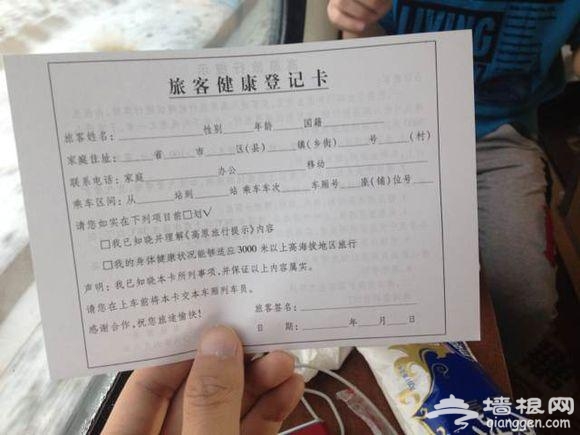 旅客健康登记卡
旅客姓名:________性别____年龄____国籍________
家庭住址:____省____市____区(县)____镇(乡街)____号____(村)
联系电话:家庭________办公________移动________
乘车区间:从____站到____站 乘车车次____车厢号____座(铺)位号____
请您如实在下列项目前□划√
□我已知晓并理解《高原旅行提示》内容
□我的身体健康状况能够适应3000米以上高海拔地区旅行
声明:我已知晓本卡所列事项,并保证以上内容属实。
请您在上车前将本卡交本车厢列车员。
感谢合作,祝您旅途愉快!
旅客签名:________
日 期:____年____月____日
LIVING
墙根网
qianggen.com